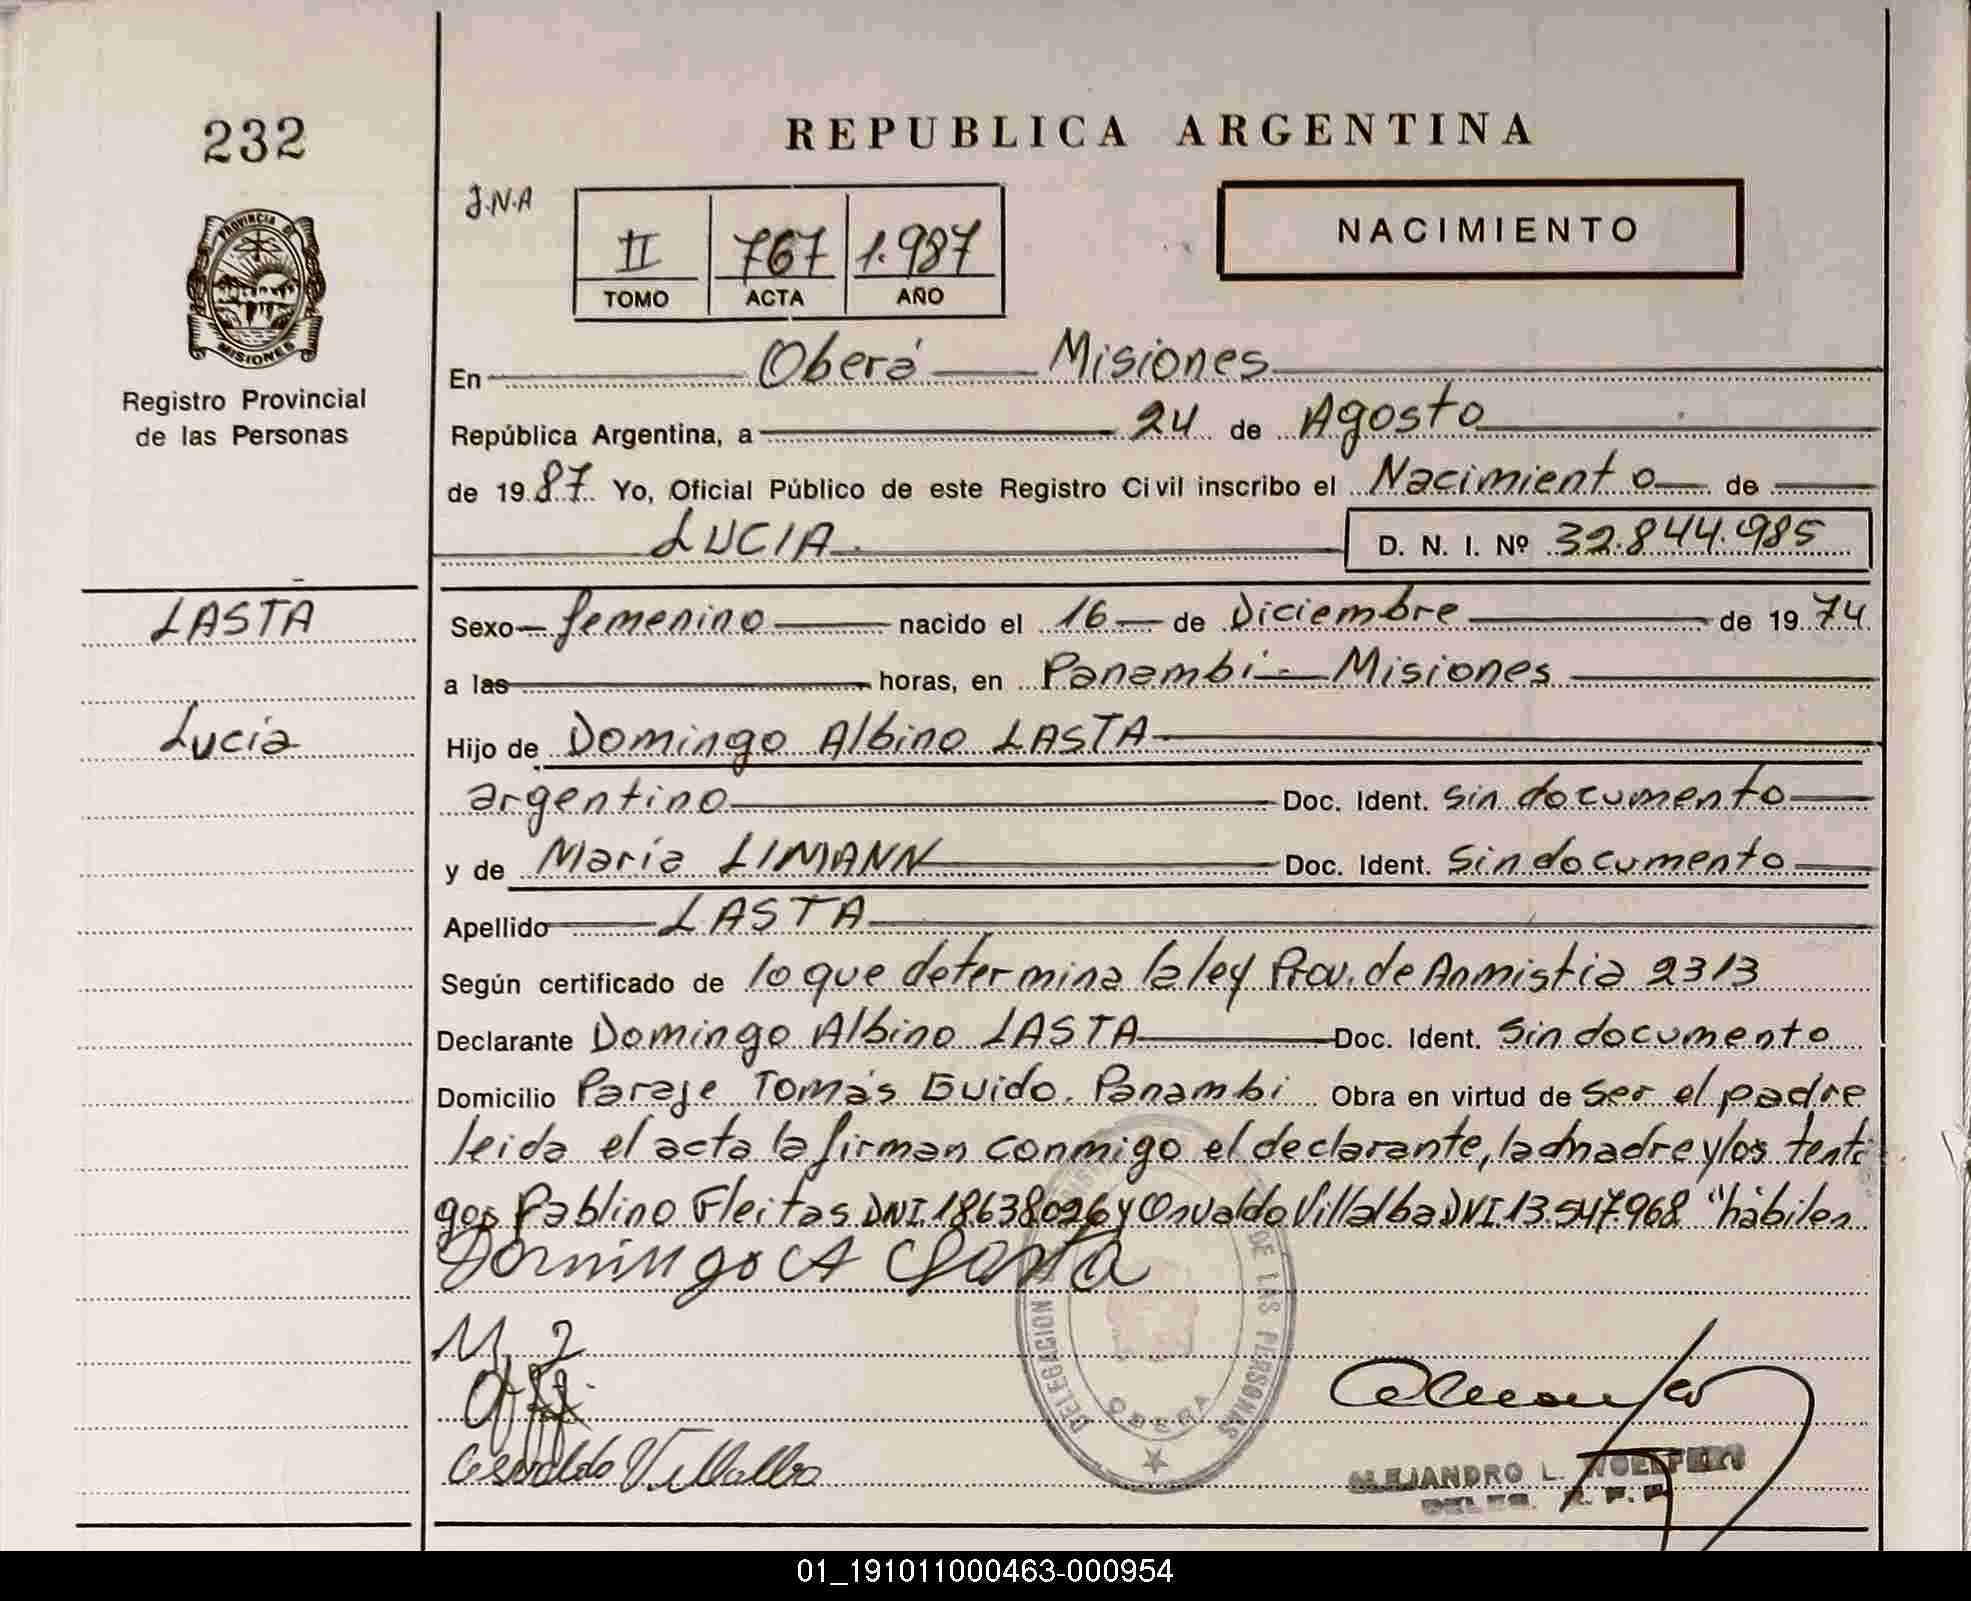 232
REPUBLICA ARGENTINA
J.N.A
II 767 1.987
TOMO ACTA AÑO
NACIMIENTO
PROVINCIA DE
MISIONES
Registro Provincial
de las Personas
En Oberá Misiones
República Argentina, a 24 de Agosto
de 1987 Yo, Oficial Público de este Registro Civil inscribo el Nacimiento de
LUCIA D. N. I. Nº 32.844.985
LASTA
Lucia
Sexo femenino nacido el 16 de Diciembre de 1974
a las horas, en Panambi - Misiones
Hijo de Domingo Albino LASTA
argentino Doc. Ident. sin documento
y de María LIMANN Doc. Ident. Sin documento
Apellido LASTA
Según certificado de lo que determina la ley Prov. de Anmistia 2313
Declarante Domingo Albino LASTA Doc. Ident. Sin documento
Domicilio Paraje Tomás Guido. Panambi Obra en virtud de ser el padre
leida el acta la firman conmigo el declarante, la madre y los testi
gos Pablino Fleitas DNI.18638026 y Osvaldo Villalba DNI.13.547.968 "hábiles
Domingo A Lasta
Osvaldo Villalba
DELEGACION DE LAS PERSONAS
OBERA
ALEJANDRO L.
01_191011000463-000954